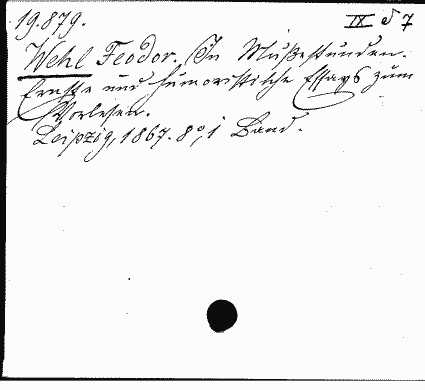 19.879. IX d 7
Wehl Feodor. In Mußestunden.
Ernste und humoristische Essays zum
Vorlesen.
Leipzig, 1867. 8°, 1 Band.